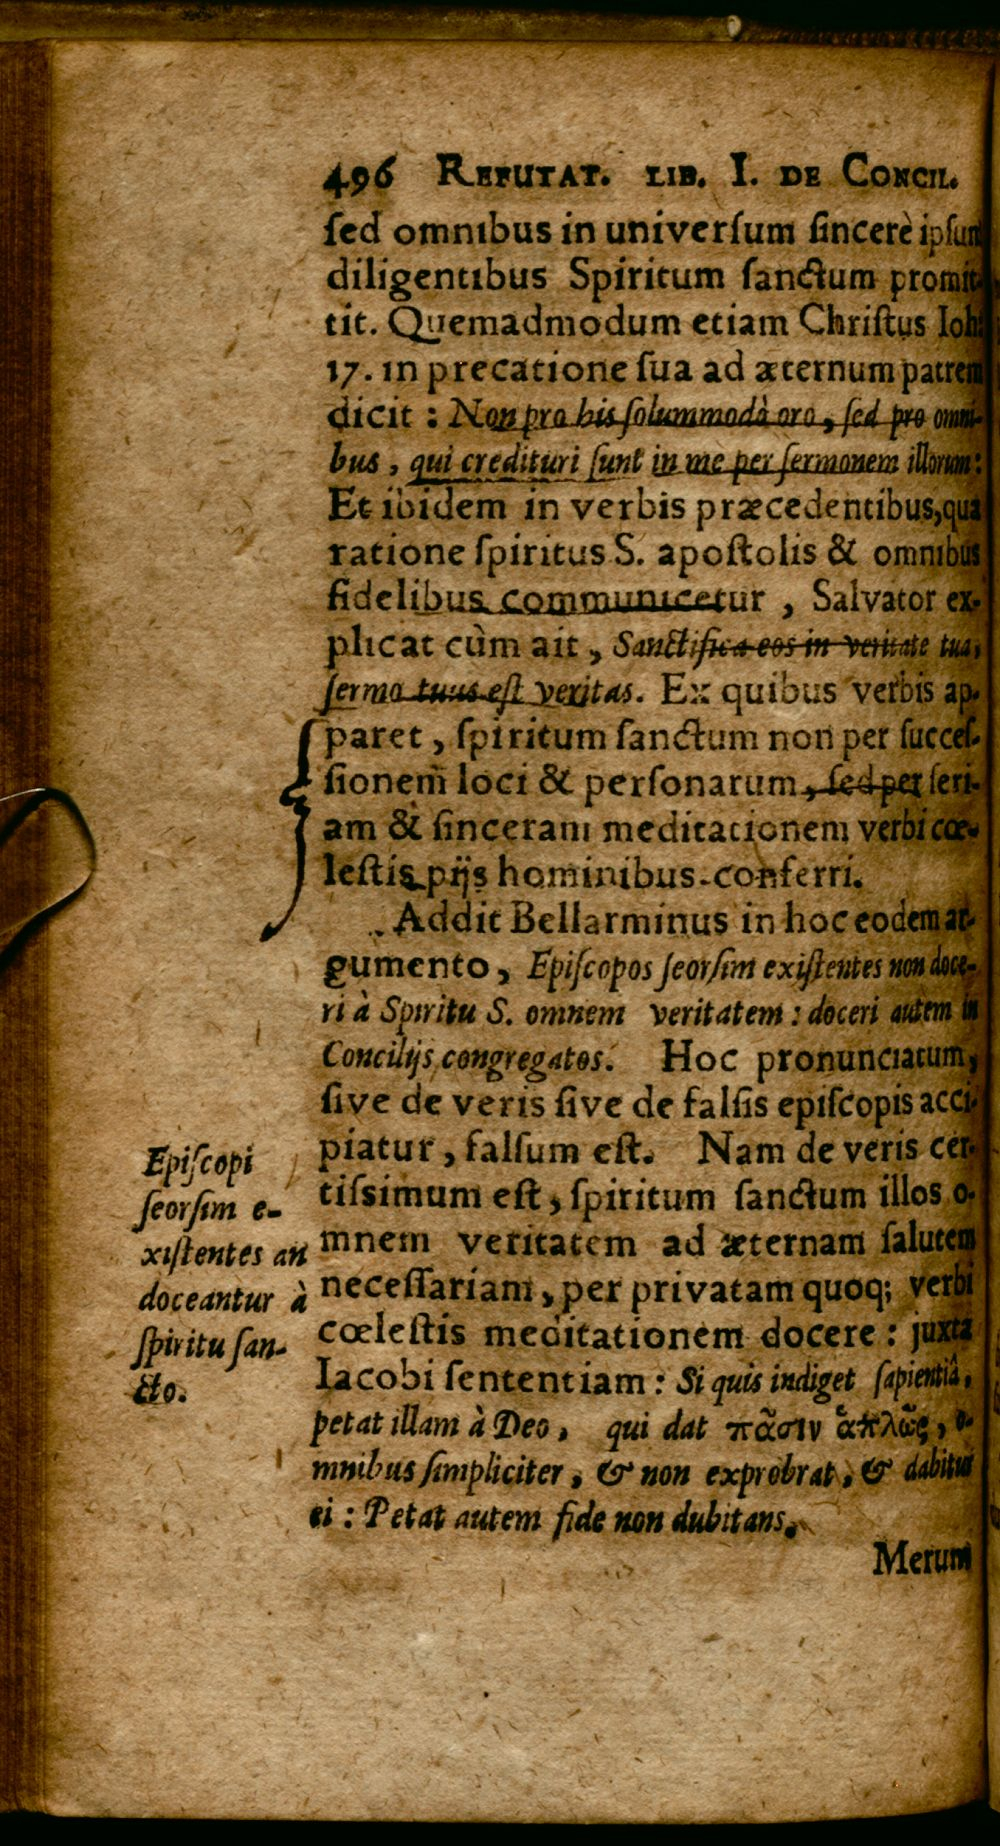 496 REFUTAT. LIB. I. DE CONCIL.
sed omnibus in universum sincerè ipsum
diligentibus Spiritum sanctum promit-
tit. Quemadmodum etiam Christus Ioh:
17. in precatione sua ad æternum patrem
dicit : Non pro his solummodò oro, sed pro omni-
bus, qui credituri sunt in me per sermonem illorum:
Et ibidem in verbis præcedentibus, qua
ratione spiritus S. apostolis & omnibus
fidelibus communicetur, Salvator ex-
plicat cùm ait, Sanctifica eos in veritate tua,
sermo tuus est veritas. Ex quibus verbis ap-
paret, spiritum sanctum non per succes-
sionem loci & personarum, sed per seri-
am & sinceram meditationem verbi cœ-
lestis pijs hominibus conferri.
Addit Bellarminus in hoc eodem ar-
gumento, Episcopos seorsim existentes non doce-
ri à Spiritu S. omnem veritatem : doceri autem in
Concilijs congregatos. Hoc pronunciatum,
sive de veris sive de falsis episcopis acci-
piatur, falsum est. Nam de veris cer-
tissimum est, spiritum sanctum illos o-
mnem veritatem ad æternam salutem
necessariam, per privatam quoq; verbi
cœlestis meditationem docere : juxta
Iacobi sententiam : Si quis indiget sapientiâ,
petat illam à Deo, qui dat πᾶσιν ἁπλῶς, o-
mnibus simpliciter, & non exprobrat, & dabitur
ei : Petat autem fide non dubitans.
Merum
Episcopi
seorsim e-
xistentes an
doceantur à
spiritu san-
cto.